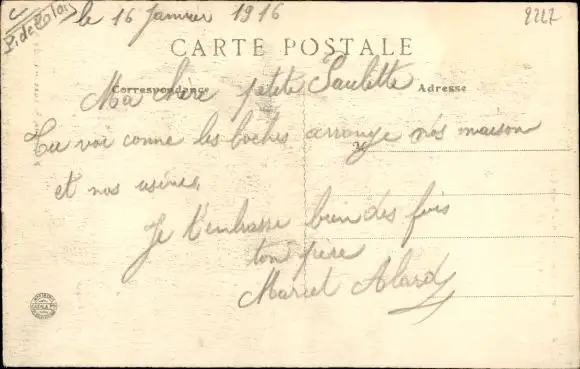 P. de Calais
le 16 Janvier 1916
8227
CARTE POSTALE
Correspondance
Adresse
Ma chère petite Paulette
Tu voi comme les boches arrange nos maison
M
et nos usines.
Je t'embrasse bien des fois
ton père
Marcel Alard